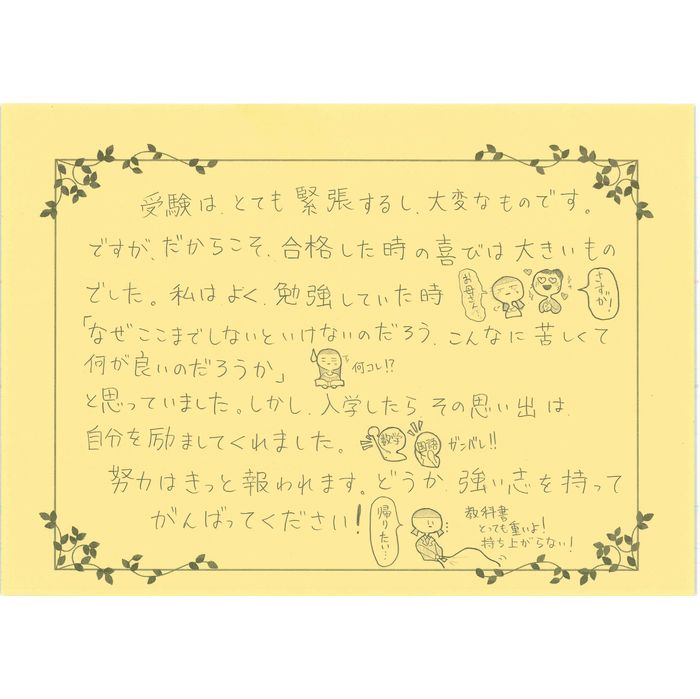 受験は、とても緊張するし、大変なものです。
ですが、だからこそ、合格した時の喜びは大きいもの
でした。私はよく、勉強していた時
お母さん〜
さすが!
「なぜここまでしないといけないのだろう、こんなに苦しくて
何が良いのだろうか」
何コレ!?
と思っていました。しかし、入学したら、その思い出は、
自分を励ましてくれました。
数学
国語
ガンバレ!!
努力はきっと報われます。どうか、強い志を持って
がんばってください!
帰りたい…
教科書
とっても重いよ!
持ち上がらない!